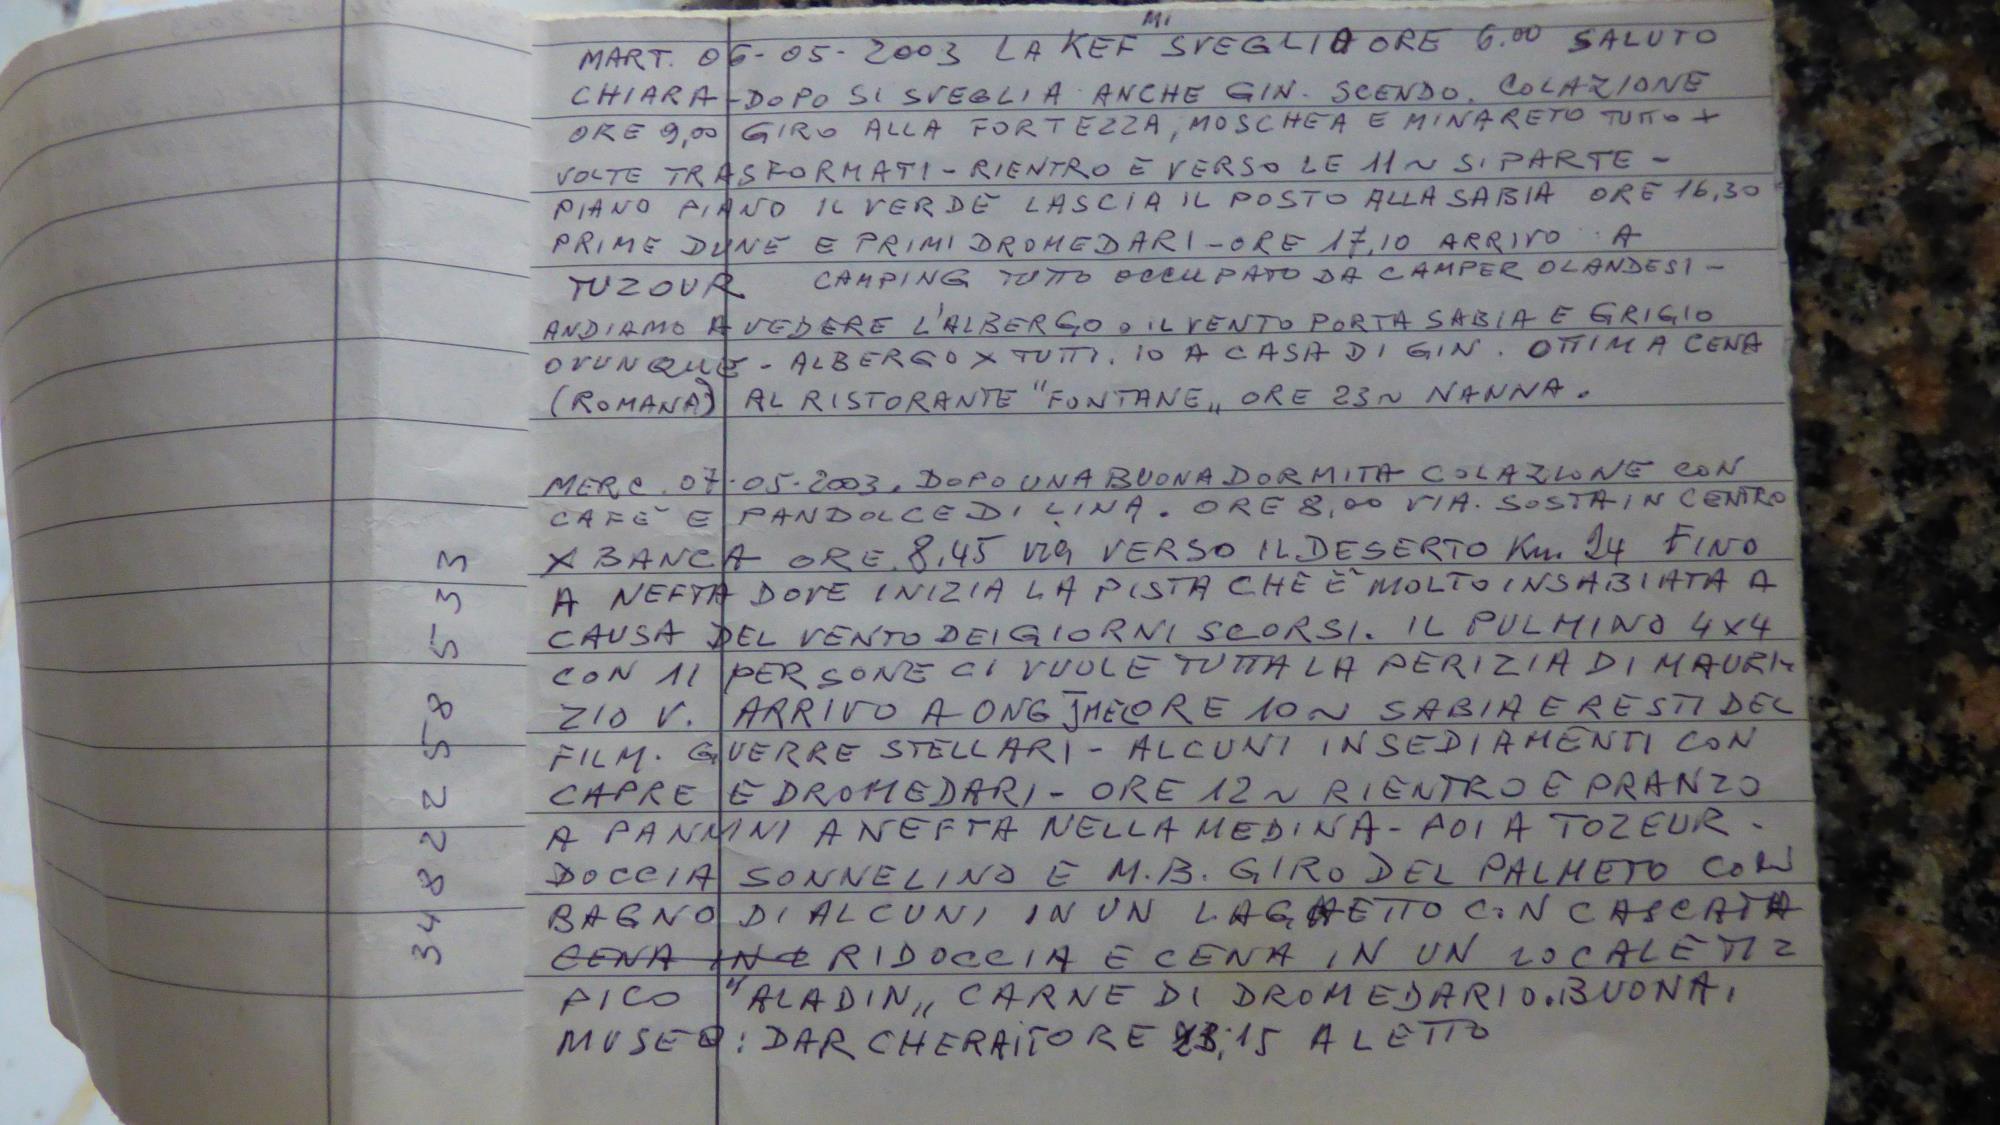 MART. 06-05-2003 LA KEF MI SVEGLIO ORE 6.00 SALUTO
CHIARA - DOPO SI SVEGLIA ANCHE GIN. SCENDO. COLAZIONE
ORE 9,00 GIRO ALLA FORTEZZA, MOSCHEA E MINARETO TUTTO +
VOLTE TRASFORMATI - RIENTRO E VERSO LE 11~ SI PARTE -
PIANO PIANO IL VERDE LASCIA IL POSTO ALLA SABIA ORE 16,30
PRIME DUNE E PRIMI DROMEDARI - ORE 17,10 ARRIVO A
TUZOUR CAMPING TUTTO OCCUPATO DA CAMPER OLANDESI -
ANDIAMO A VEDERE L'ALBERGO. IL VENTO PORTA SABIA E GRIGIO
OVUNQUE - ALBERGO X TUTTI. IO A CASA DI GIN. OTTIMA CENA
(ROMANA) AL RISTORANTE "FONTANE„ ORE 23~ NANNA.
MERC. 07-05-2003. DOPO UNA BUONA DORMITA COLAZIONE CON
CAFE' E PANDOLCE DI LINA. ORE 8,00 VIA. SOSTA IN CENTRO
X BANCA ORE 8,45 via VERSO IL DESERTO Km. 24 FINO
A NEFTA DOVE INIZIA LA PISTA CHE E' MOLTO INSABIATA A
CAUSA DEL VENTO DEI GIORNI SCORSI. IL PULMINO 4X4
CON 11 PERSONE CI VUOLE TUTTA LA PERIZIA DI MAURI-
ZIO V. ARRIVO A ONG JMEL ORE 10~ SABIA E RESTI DEL
FILM. GUERRE STELLARI - ALCUNI INSEDIAMENTI CON
CAPRE E DROMEDARI - ORE 12~ RIENTRO E PRANZO
A PANINI A NEFTA NELLA MEDINA - POI A TOZEUR -
DOCCIA SONNELINO E M.B. GIRO DEL PALMETO CON
BAGNO DI ALCUNI IN UN LAGHETTO CON CASCATA
CENA IN RIDOCCIA E CENA IN UN LOCALE TI
PICO "ALADIN„ CARNE DI DROMEDARIO. BUONA.
MUSEO: DAR CHERAÏT ORE 23,15 A LETTO
348 22 58 533